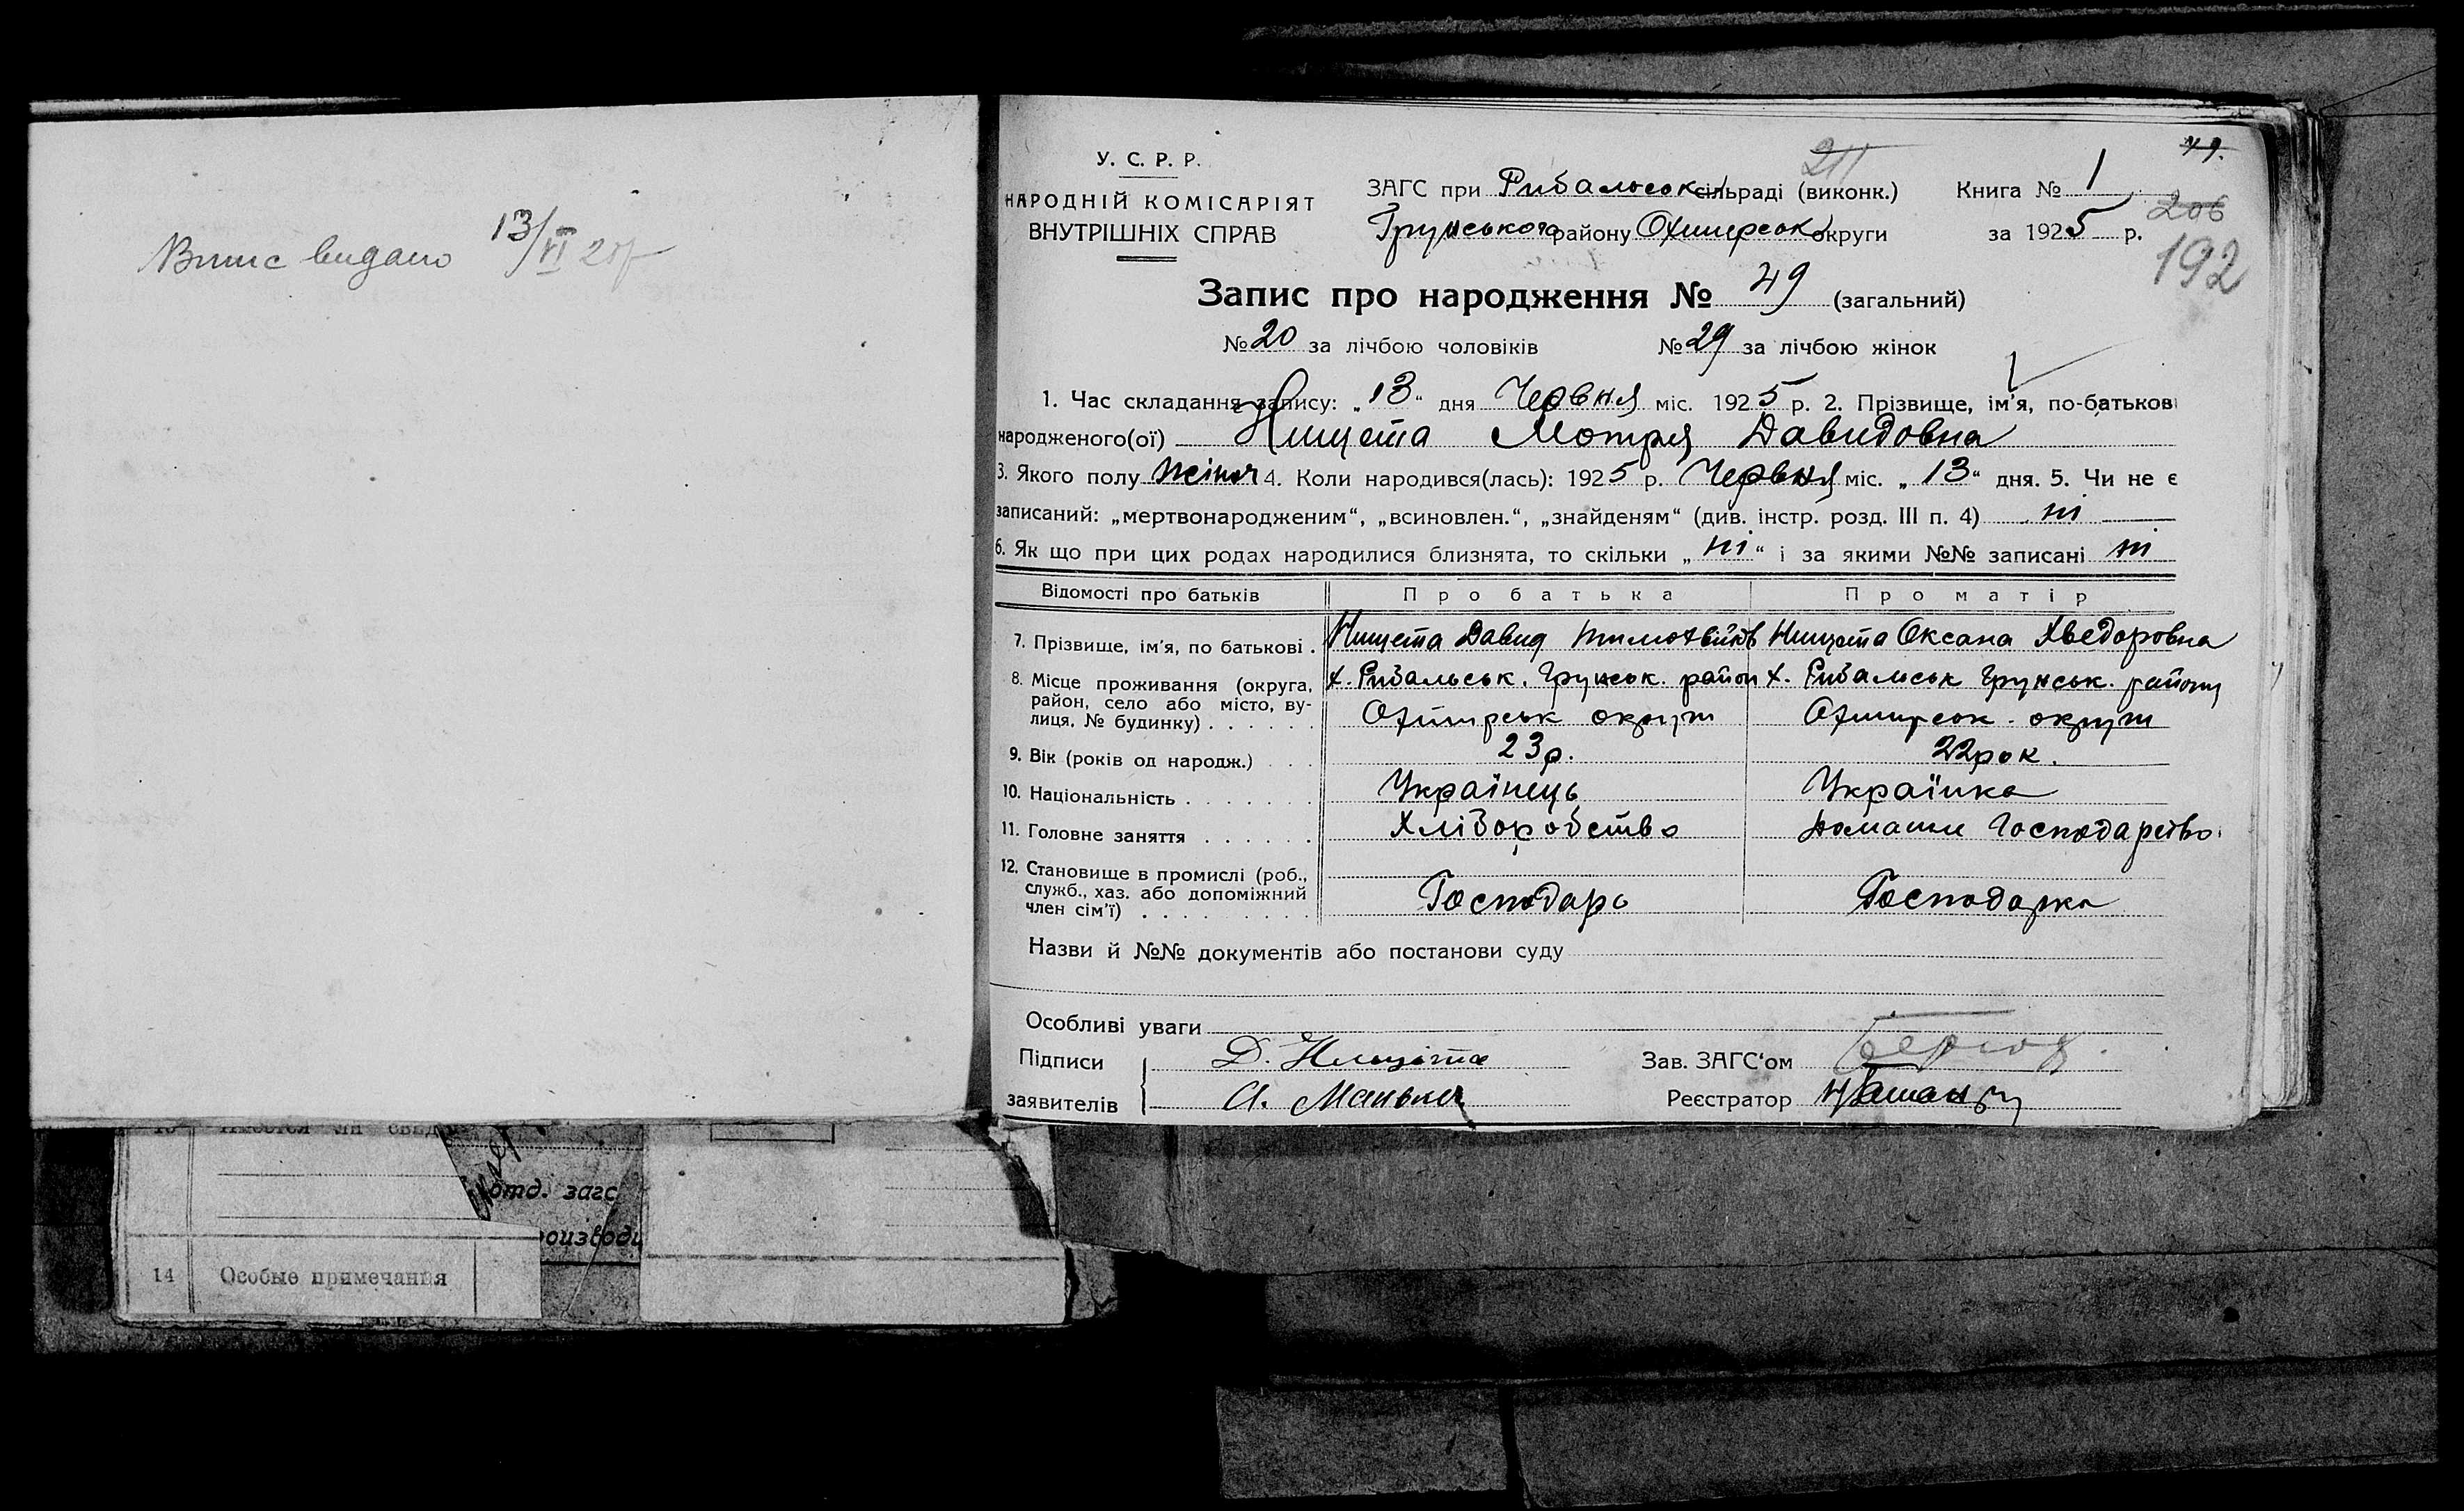 Випис видано 13/VI 25р
У. С. Р. Р.
НАРОДНІЙ КОМІСАРІЯТ
ВНУТРІШНІХ СПРАВ
211
49.
ЗАГС при Рибальськ сільраді (виконк.) Книга № 1
206
Грунського району Охтирськ округи за 1925 р.
192
Запис про народження № 49 (загальний)
№ 20 за лічбою чоловіків № 29 за лічбою жінок
1. Час складання запису: „13“ дня Червня міс. 1925 р. 2. Прізвище, ім'я, по-батькові
народженого(ої) Нищета Мотря Давидовна
3. Якого полу жіноч 4. Коли народився(лась): 1925 р. Червня міс. „13“ дня. 5. Чи не є
записаний: „мертвонародженим“, „всиновлен.“, „знайденям“ (див. інстр. розд. III п. 4) ні
6. Як що при цих родах народилися близнята, то скільки „ні“ і за якими №№ записані ні
Відомості про батьків Про батька Про матір
7. Прізвище, ім'я, по батькові . Нищета Давид Тимохвійов Нищета Оксана Хведоровна
8. Місце проживання (округа, х. Рибальськ. Грунськ. район х. Рибальськ Грунськ. району
район, село або місто, ву-
лиця, № будинку) . . . . . . Охтирськ округи Охтирськ. округи
9. Вік (років од народж.) . . . 23р. 22рок.
10. Національність . . . . . . . Українець Українка
11. Головне заняття . . . . . . Хліборобство домашн Господарство.
12. Становище в промислі (роб.,
служб., хаз. або допоміжний
член сім'ї) . . . . . . . . . Господарь Господарка
Назви й №№ документів або постанови суду
Особливі уваги
Підписи Д. Нищета Зав. ЗАГС'ом
заявителів Реєстратор
отд. загс
14 Особые примечания